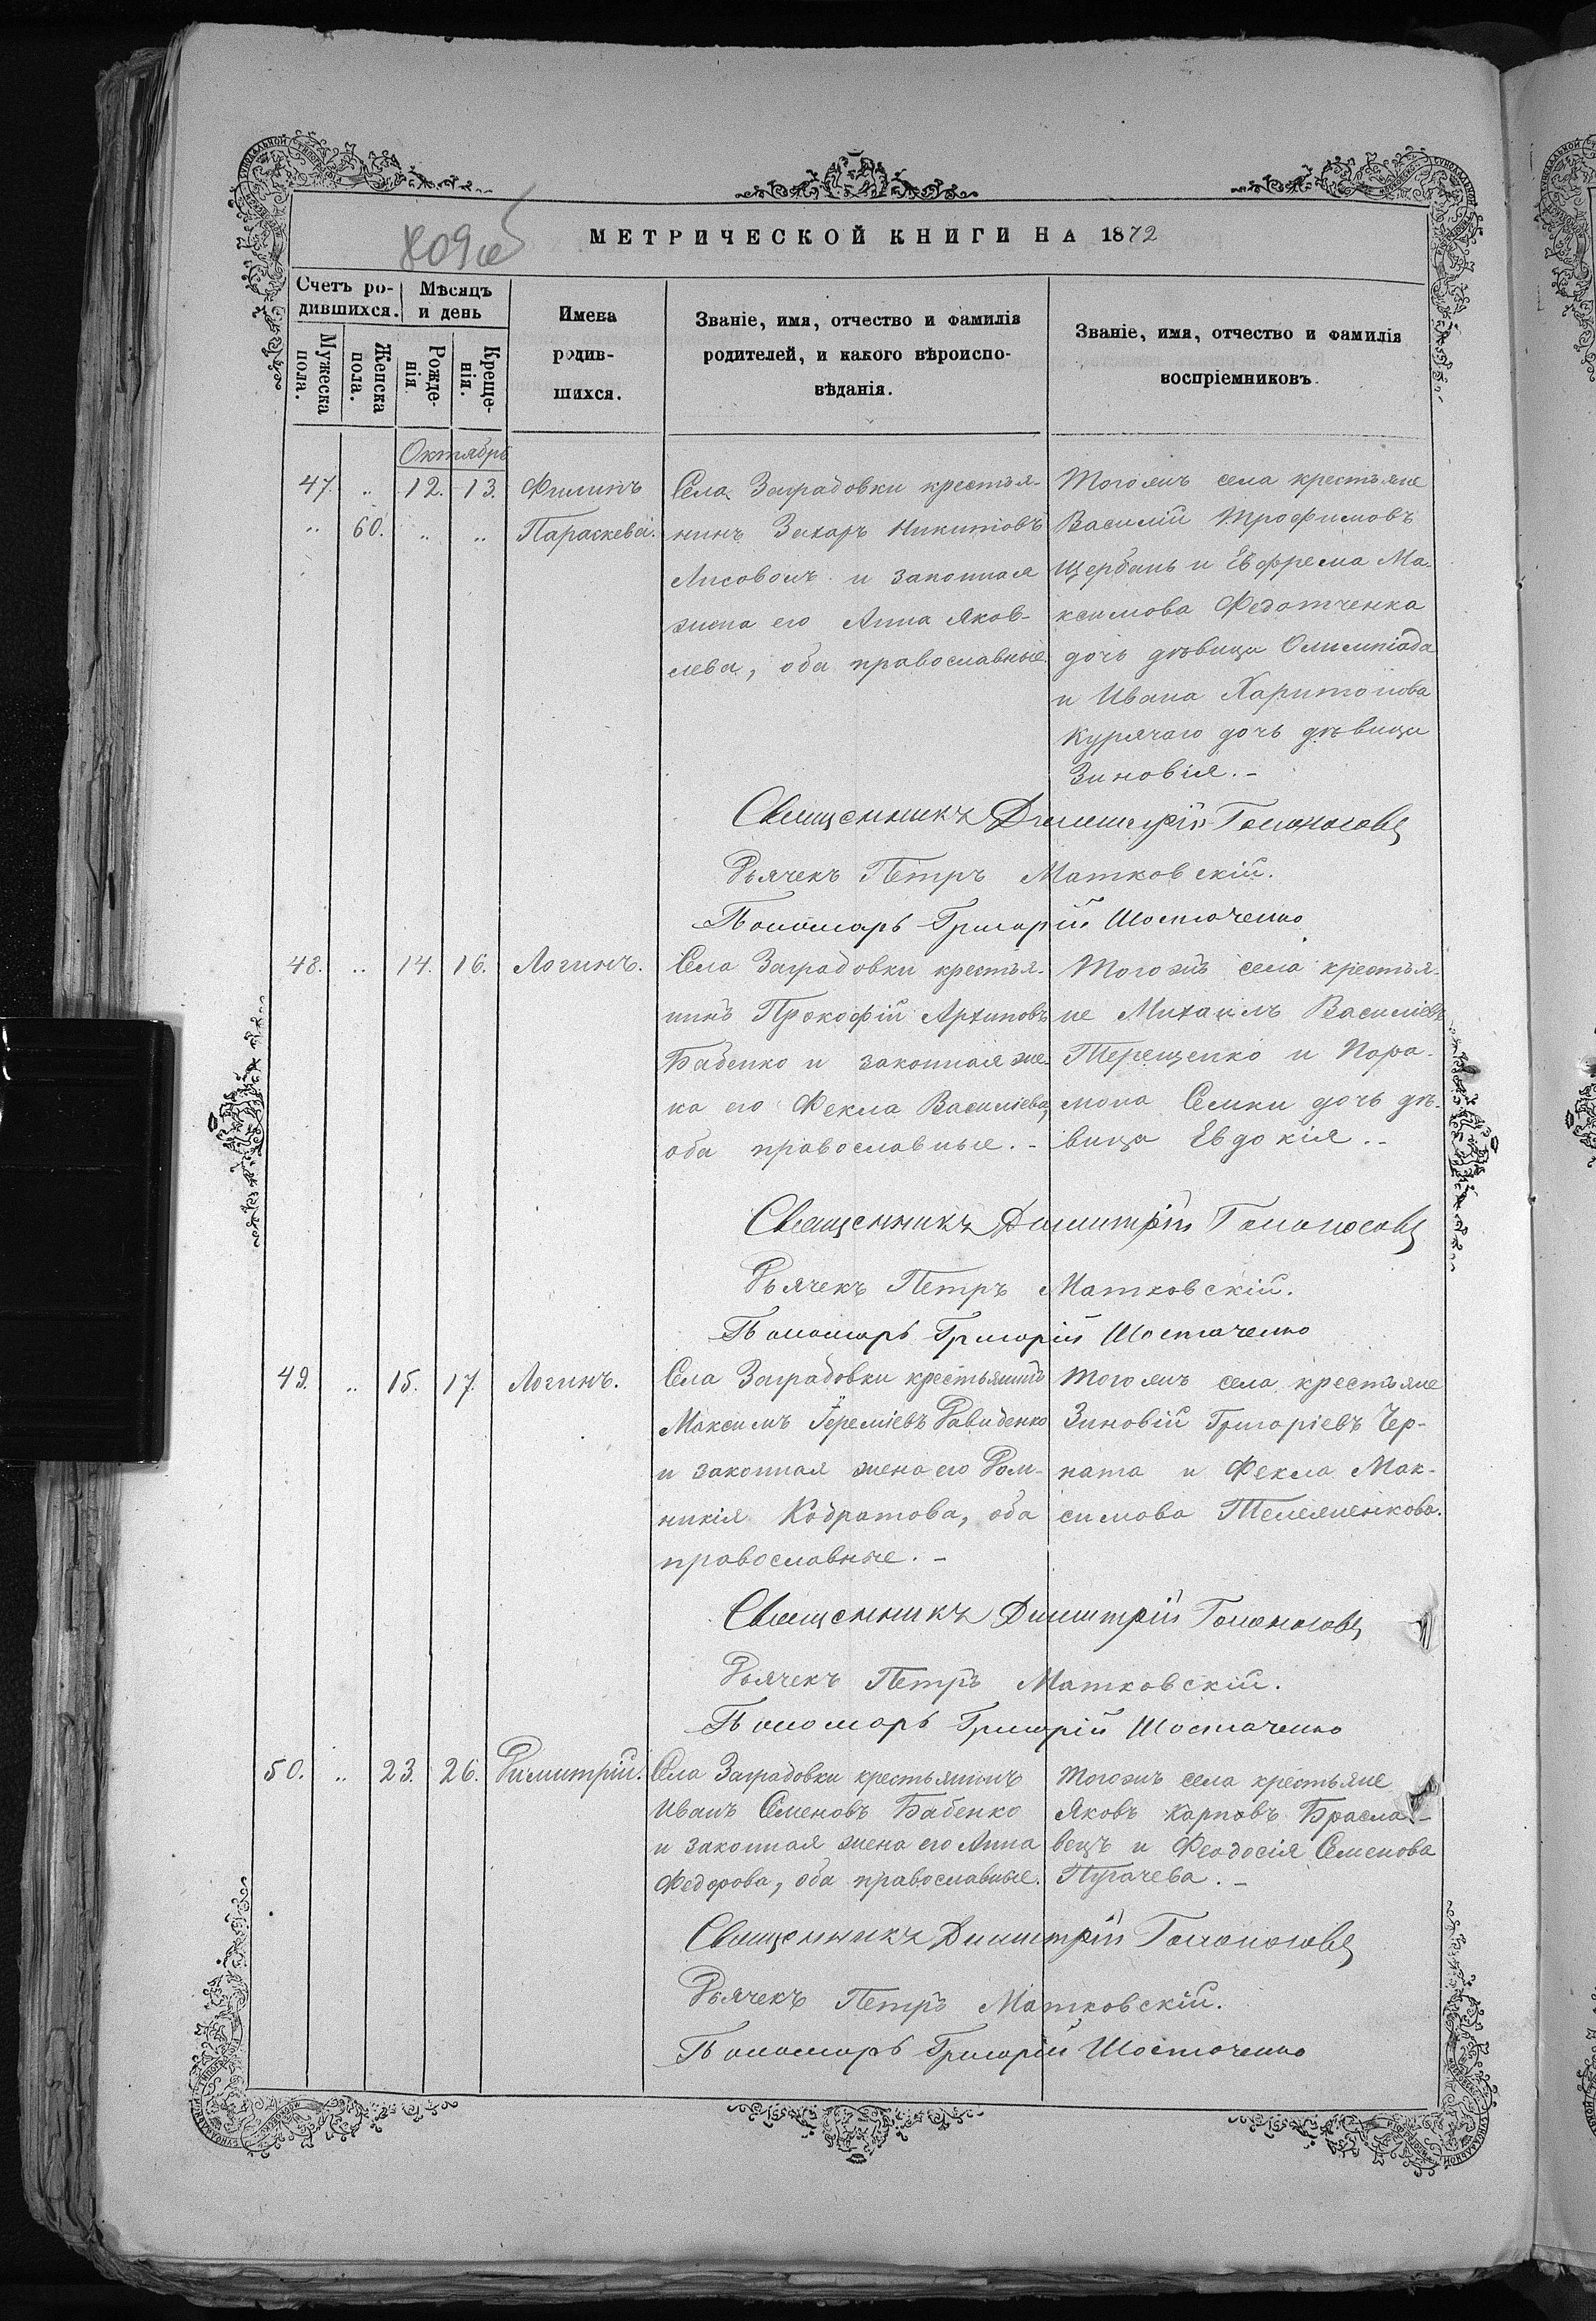 809 об
МЕТРИЧЕСКОЙ КНИГИ НА 1872
Счетъ ро-
дившихся.
Мѣсяцъ
и день
Мужеска
пола.
Женска
пола.
Рожде-
нія
Креще-
нія.
Имена
родив-
шихся.
Званіе, имя, отчество и фамилія
родителей, и какого вѣроиспо-
вѣданія.
Званіе, имя, отчество и фамилія
воспріемниковъ.
Октябрь
47. „ 12. 13. Филипъ
„ 60. „ „ Параскева.
Села Заградовки крестья-
нинъ Захаръ Никитовъ
Лисовомъ и законная
жена его Анна Яков-
лева, оба православные.
Тогожъ села крестьяне
Василій Трофимовъ
Щербань и Евфрема Ма-
ксимова Федотченка
дочь дѣвица Олимпіада
и Ивана Харитонова
Курячаго дочь дѣвица
Зиновія. -
Священникъ Димитрій
Дьячекъ Петръ Матковскій.
Пономарь Григорій Шостаченко
48. „ 14. 16. Логинъ.
Села Заградовки крестья-
нинъ Прокофій Архиповъ
Бабенко и законная же-
на его Фекла Василіева,
оба православные. -
Тогожъ села крестья-
не Михаилъ Василіевъ
Терещенко и Пара-
мона Семки дочь дѣ-
вица Евдокія. -
Священникъ Димитрій
Дьячекъ Петръ Матковскій.
Пономарь Григорій Шостаченко
49. „ 15. 17. Логинъ.
Села Заградовки крестьянинъ
Максимъ Іереміевъ Давиденко
и законная жена его Дом-
никія Кодратова, оба
православные. -
Тогожъ села крестьяне
Зиновій Григоріевъ Чер-
ната и Фекла Мак-
симова
Священникъ Димитрій
Дьячекъ Петръ Матковскій.
Пономарь Григорій Шостаченко
50. „ 23. 26. Димитрій.
Села Заградовки крестьянинъ
Иванъ Семеновъ Бабенко
и законная жена его Анна
Федорова, оба православные.
Тогожъ села крестьяне
Яковъ Карповъ Брасла-
вецъ и Феодосія Семенова
Пугачева. -
Священникъ Димитрій
Дьячекъ Петръ Матковскій.
Пономарь Григорій Шостаченко